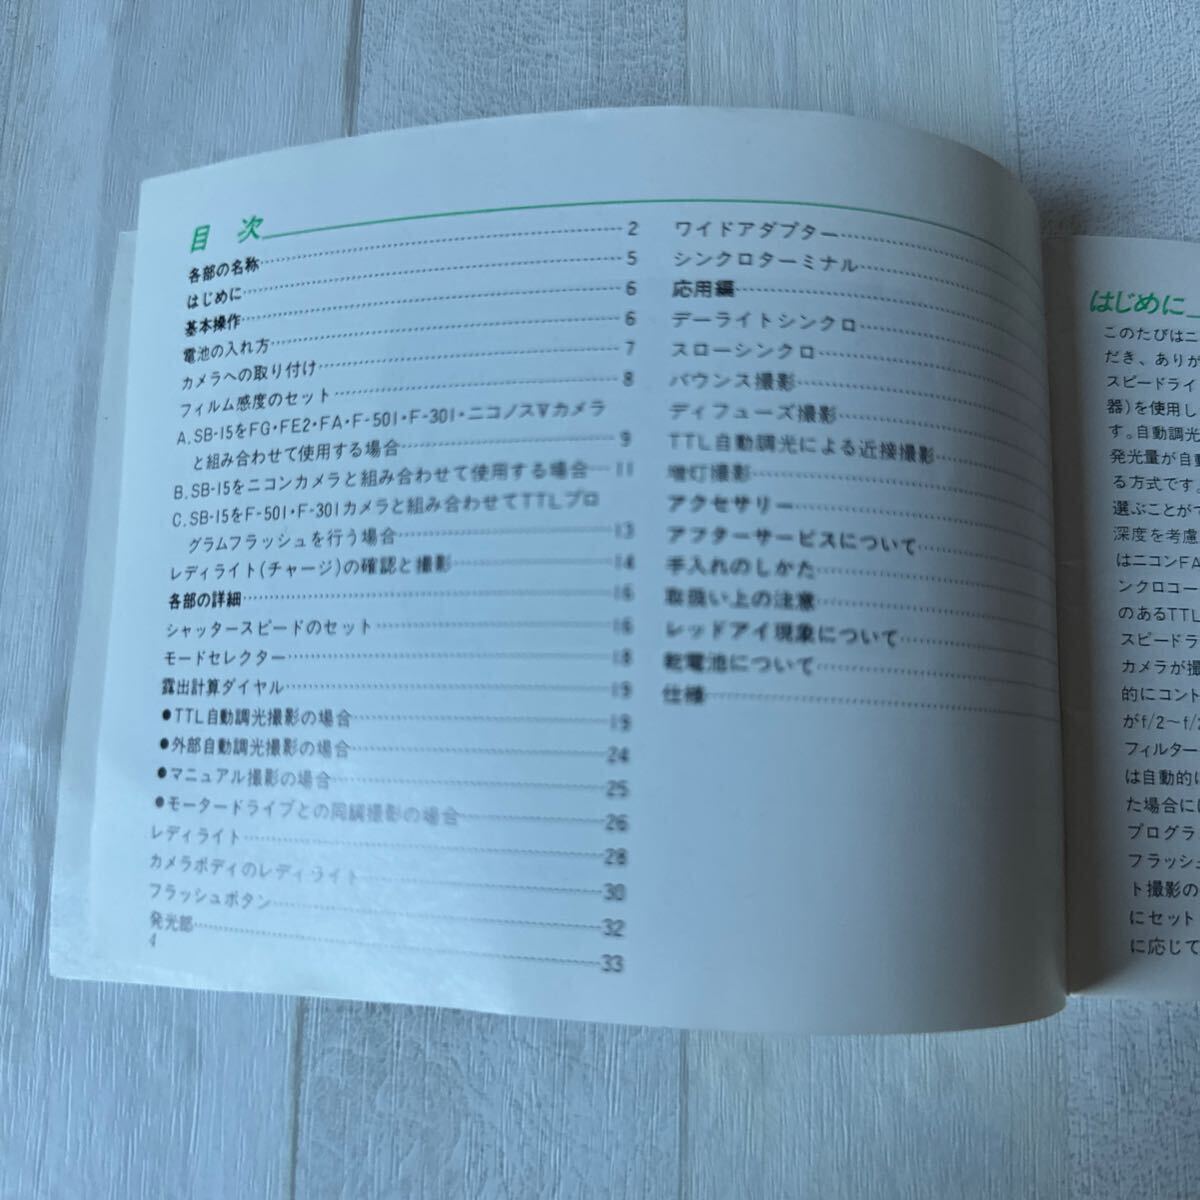 目次
各部の名称 2
はじめに 5
基本操作 6
電池の入れ方 6
カメラへの取り付け 7
フィルム感度のセット 8
A.SB-15をFG・FE2・FA・F-501・F-301・ニコノスVカメラ
と組み合わせて使用する場合 9
B.SB-15をニコンカメラと組み合わせて使用する場合 11
C.SB-15をF-501・F-301カメラと組み合わせてTTLプロ
グラムフラッシュを行う場合 13
レディライト(チャージ)の確認と撮影 14
各部の詳細 16
シャッタースピードのセット 16
モードセレクター 18
露出計算ダイヤル 19
●TTL自動調光撮影の場合 19
●外部自動調光撮影の場合 24
●マニュアル撮影の場合 25
●モータードライブとの同調撮影の場合 26
レディライト 28
カメラボディのレディライト 30
フラッシュボタン 32
発光部 33
4
ワイドアダプター
シンクロターミナル
応用編
デーライトシンクロ
スローシンクロ
バウンス撮影
ディフューズ撮影
TTL自動調光による近接撮影
増灯撮影
アクセサリー
アフターサービスについて
手入れのしかた
取扱い上の注意
レッドアイ現象について
乾電池について
仕様
はじめに
このたびはニ
だき、ありが
スピードライ
器)を使用し
す。自動調光
発光量が自動
る方式です。
選ぶことが
深度を考慮
はニコンFA
ンクロコー
のあるTTL
スピードラ
カメラが撮
的にコント
がf/2〜f/
フィルター
は自動的に
た場合に
プログラ
フラッシュ
ト撮影の
にセット
に応じて